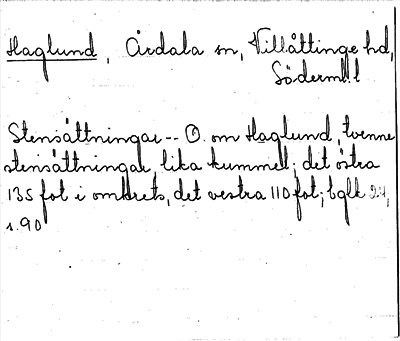 Haglund, Årdala sn, Villåttinge hd,
Södermnl
Stensättningar -- O. om Haglund tvenne
stensättningar, lika kummel; det östra
135 fot i omkrets, det vestra 110 fot; bglk 24,
s.90